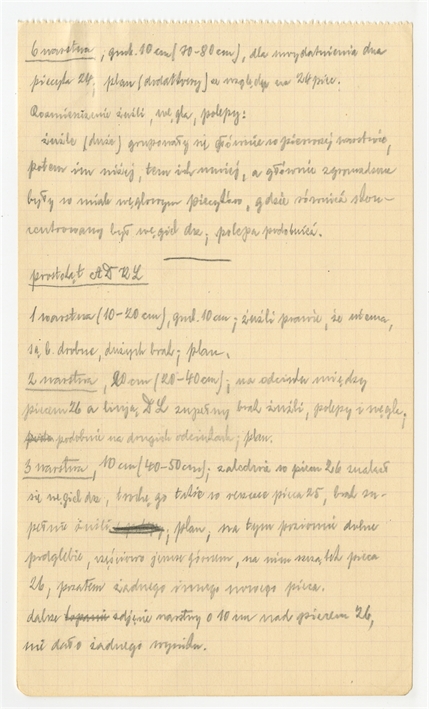 6 warstwa, grub. 10 cm (70-80 cm), dla uwydatnienia dna
pieca 24, plan (dodatkowy) ze względu na 24 piec.
Rozmieszczenie żużli, węgla, polepy:
żużle (duże) grupowały się głównie w pierwszej warstwie,
potem im niżej, tem ich mniej, a głównie zgromadzone
były w miale węglowym pieców, gdzie również skon-
centrowany był węgiel drz; polepa podobnież.
prostokąt ADKL
1 warstwa (10-20 cm), grub. 10 cm; żużli prawie, że niema,
są b. drobne, dużych brak; plan.
2 warstwa, 20 cm (20-40 cm); na odcinku między
piecem 26 a linją DL zupełny brak żużli, polepy i węgla;
podobnie na drugich odcinkach; plan.
3 warstwa, 10 cm (40-50 cm); zaledwie w piecu 26 znalazł
się węgiel drz, trochę go także w reszcie pieca 25, brak zu-
pełnie żużli, plan, na tym poziomie dalsze
podglebie, częściowo jeszcze górzem, na nim resztek pieca
26, pozatem żadnego innego nowego pieca.
dalsze zdjęcie warstwy o 10 cm nad piecem 26,
nie dało żadnego wyniku.